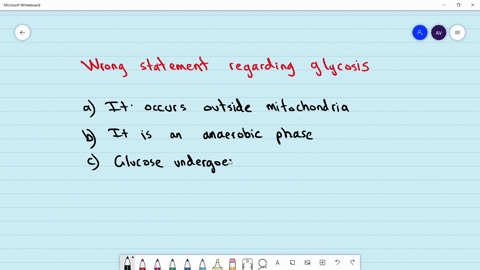 Microsoft Whiteboard
AV
Wrong statement regarding glycosis
a) It occurs outside mitochondria
b) It is an anaerobic phase
c) Glucose undergoes